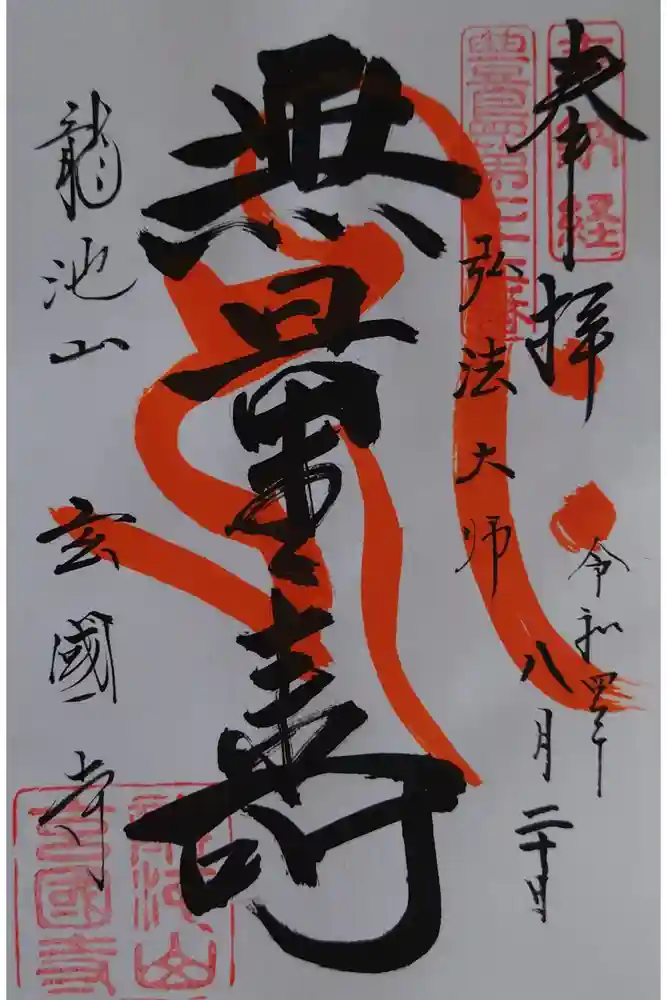 奉拝
奉納経
令和四年
八月二十日
豊島第三十番
弘法大師
無量寿
龍池山
玄國寺
龍池山
玄國寺